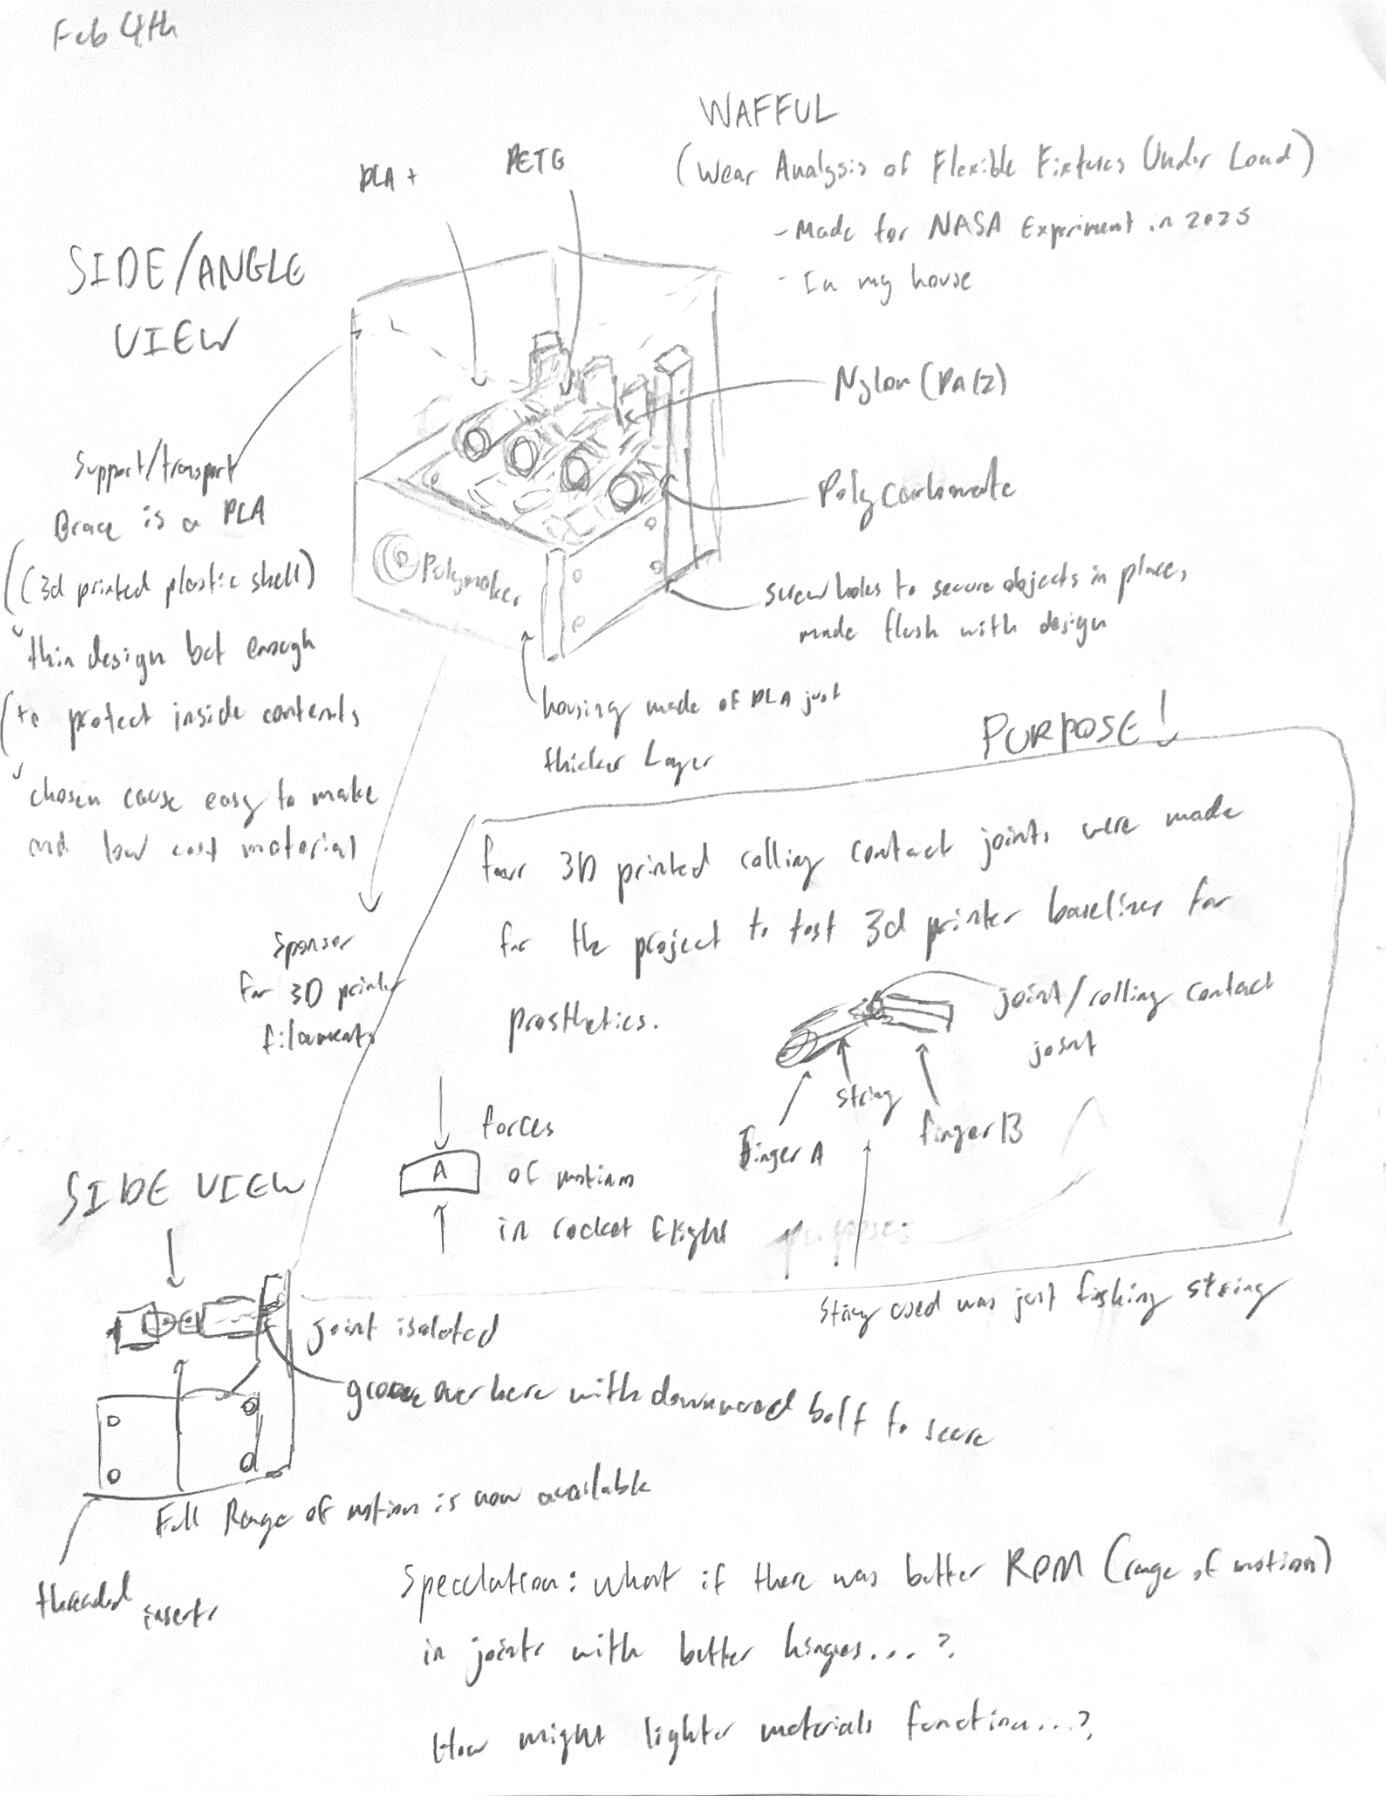 Feb 4th
WAFFUL
(Wear Analysis of Flexible Fixtures Under Load)
- Made for NASA Experiment in 2025
- In my house
PLA +
PETG
SIDE/ANGLE
VIEW
Nylon (PA12)
Polycarbonate
Support/transport
Brace is a PLA
(3d printed plastic shell)
thin design but enough
to protect inside contents
chosen cause easy to make
and low cost material
Polymaker
screw holes to secure objects in place,
made flush with design
housing made of PLA just
thicker Layer
Sponsor
for 3D printer
filaments
PURPOSE!
four 3D printed rolling contact joints were made
for the project to test 3d printer baselines for
prosthetics.
joint/rolling contact
joint
string
Finger A
finger B
forces
A
of motion
in rocket flight
purpose:
string used was just fishing string
SIDE VIEW
joint isolated
groove over here with downward bolt to secure
Full Range of motion is now available
threaded
inserts
Speculation: What if there was better ROM (range of motion)
in joints with better hinges...?
How might lighter materials function...?